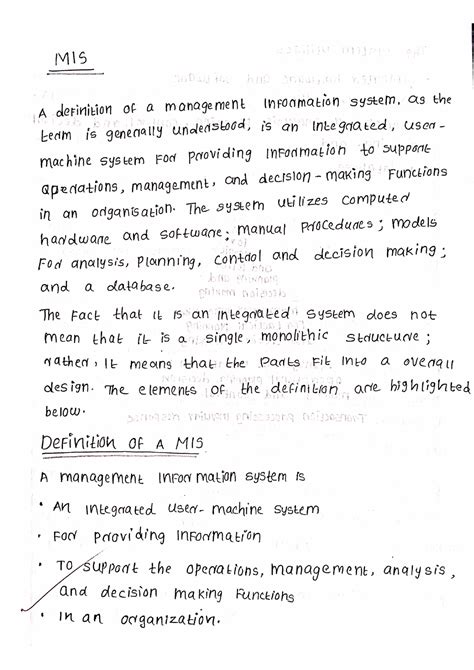 MIS
A definition of a management information system, as the
term is generally understood, is an integrated, user-
machine system for providing information to support
operations, management, and decision-making functions
in an organisation. The system utilizes computed
hardware and software; manual procedures; models
for analysis, planning, control and decision making;
and a database.
The fact that it is an integrated system does not
mean that it is a single, monolithic structure;
rather, it means that the parts fit into a overall
design. The elements of the definition are highlighted
below.
Definition of a MIS
A management information system is
• An integrated user-machine system
• For providing information
• To support the operations, management, analysis,
and decision making functions
• In an organization.